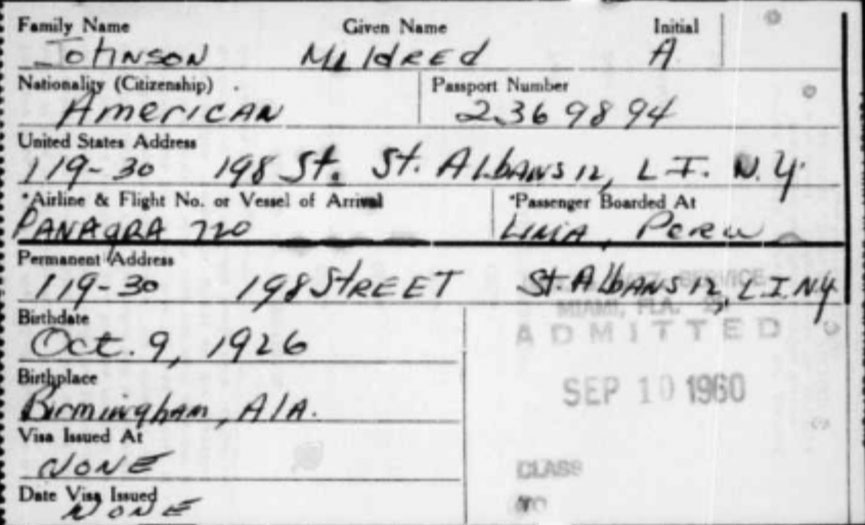 Family Name Given Name Initial
Johnson Mildred A
Nationality (Citizenship) Passport Number
American 2369894
United States Address
119-30 198 St. St. Albans 12, L.I. N.Y.
*Airline & Flight No. or Vessel of Arrival *Passenger Boarded At
PANAGRA 720 LIMA, Peru
Permanent Address
119-30 198 STREET St. Albans 12, L.I. NY
SERVICE
MIAMI, FLA.
Birthdate
Oct. 9, 1926
ADMITTED
Birthplace
Birmingham, Ala.
SEP 10 1960
Visa Issued At
NONE
CLASS
Date Visa Issued
NONE
TO